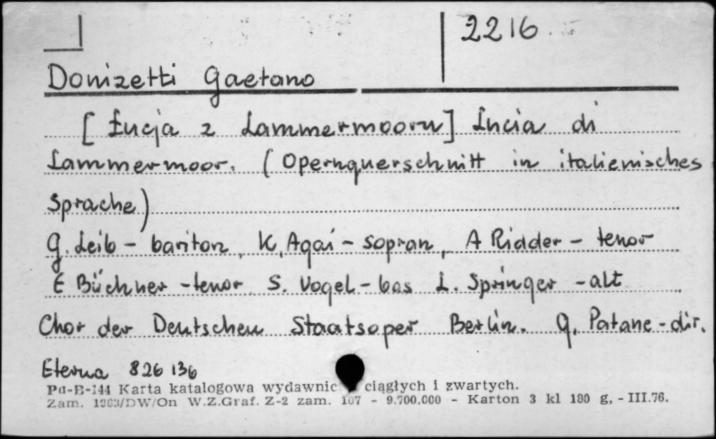 2216
Donizetti Gaetano
[Łucja z Lammermooru] Lucia di
Lammermoor. (Opernquerschnitt in italienisches
Sprache)
G. Leib - bariton, K. Agai - sopran, A Ridder - tenor
E Büchner - tenor S. Vogel - bas L. Springer - alt
Chor der Deutschen Staatsoper Berlin. G. Patane - dir.
Eterna 826 136
Pu-B-144 Karta katalogowa wydawnic ciągłych i zwartych.
Zam. 1963/DW/On W.Z.Graf. Z-2 zam. 107 - 9.700.000 - Karton 3 kl 180 g. - III.76.